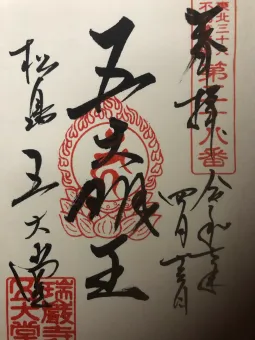 東北三十六
第二十八番
奉拝
令和
四月
五大明王
松島 五大堂
瑞巌寺
五大堂